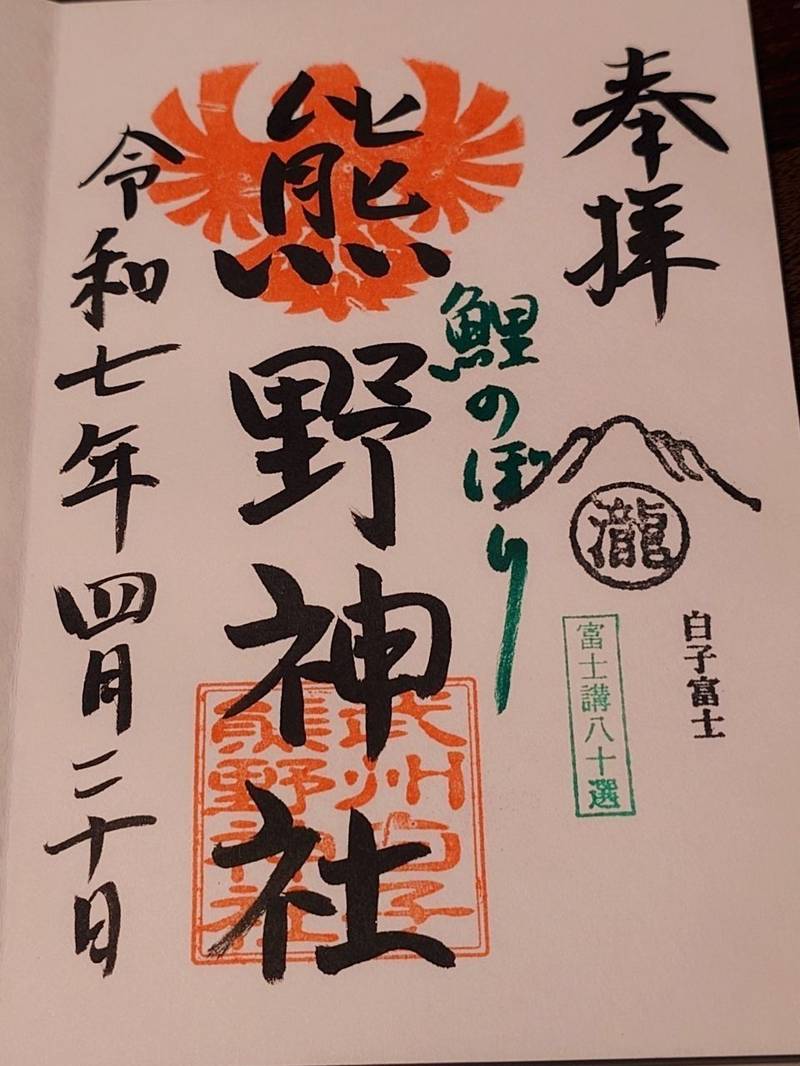 奉拝
瀧
白子富士
富士講八十選
鯉のぼり
熊野神社
武州白子
熊野神社
令和七年四月二十日